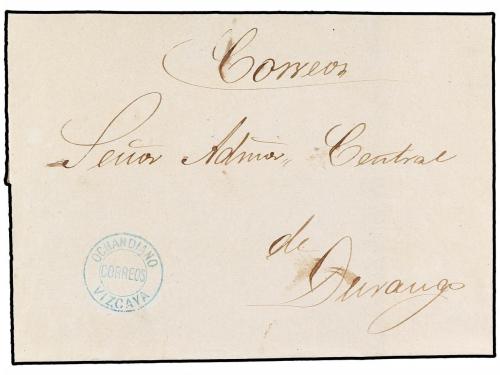 Correos
Señor Admor,, Central
de
Durango
OCHANDIANO
CORREOS
VIZCAYA